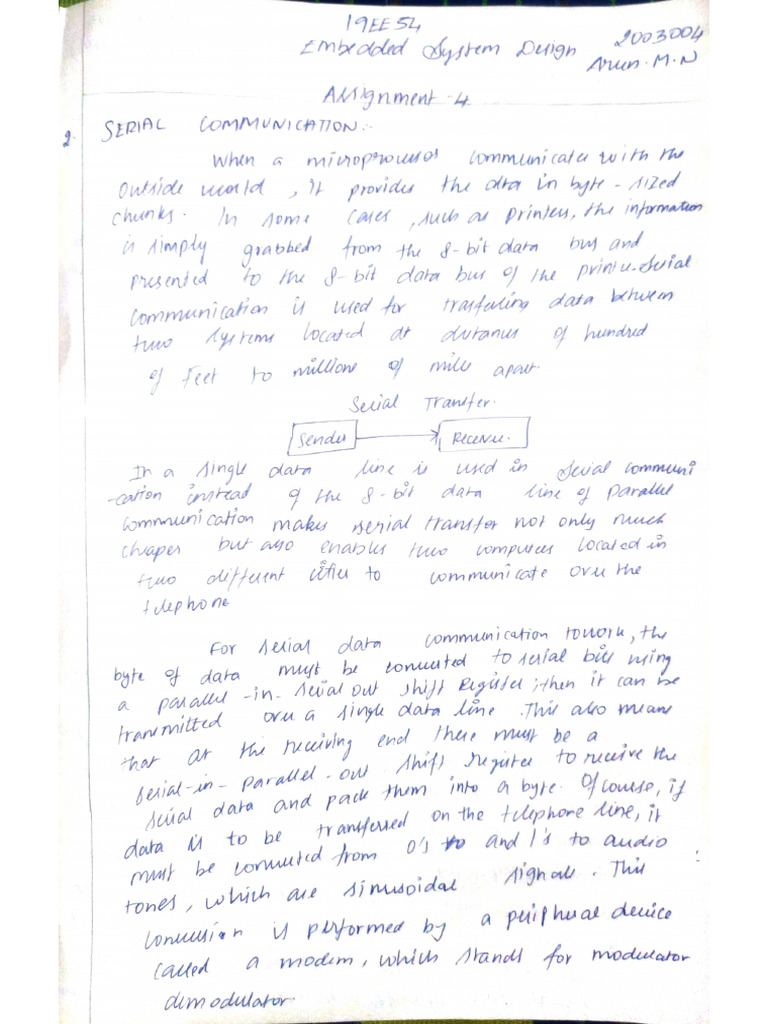 19EE54
Embedded System Design 2003004
Arun.M.N
Assignment-4
2. SERIAL COMMUNICATION:-
When a microprocessor communicates with the
outside world, it provides the data in byte-sized
chunks. In some cases, such as printers, the information
is simply grabbed from the 8-bit data bus and
presented to the 8-bit data bus of the printer. Serial
communication is used for trasfering data between
two systems located at distances of hundred
of feet to millions of miles apart.
Serial Transfer.
Sender Receiver.
In a single data line is used in serial communi
-cation instead of the 8-bit data line of parallel
communication makes serial transfer not only much
cheaper but also enables two computers located in
two different cities to communicate over the
telephone
For serial data communication to work, the
byte of data must be converted to serial bits using
a parallel-in-serial out shift register; then it can be
transmitted over a single data line. This also means
that at the receiving end there must be a
serial-in-parallel-out shift register to receive the
serial data and pack them into a byte. Of course, if
data is to be transferred on the telephone line, it
must be converted from 0's to and 1's to audio
tones, which are sinusoidal signals. This
conversion is performed by a peripheral device
called a modem, which stands for modulator
demodulator.